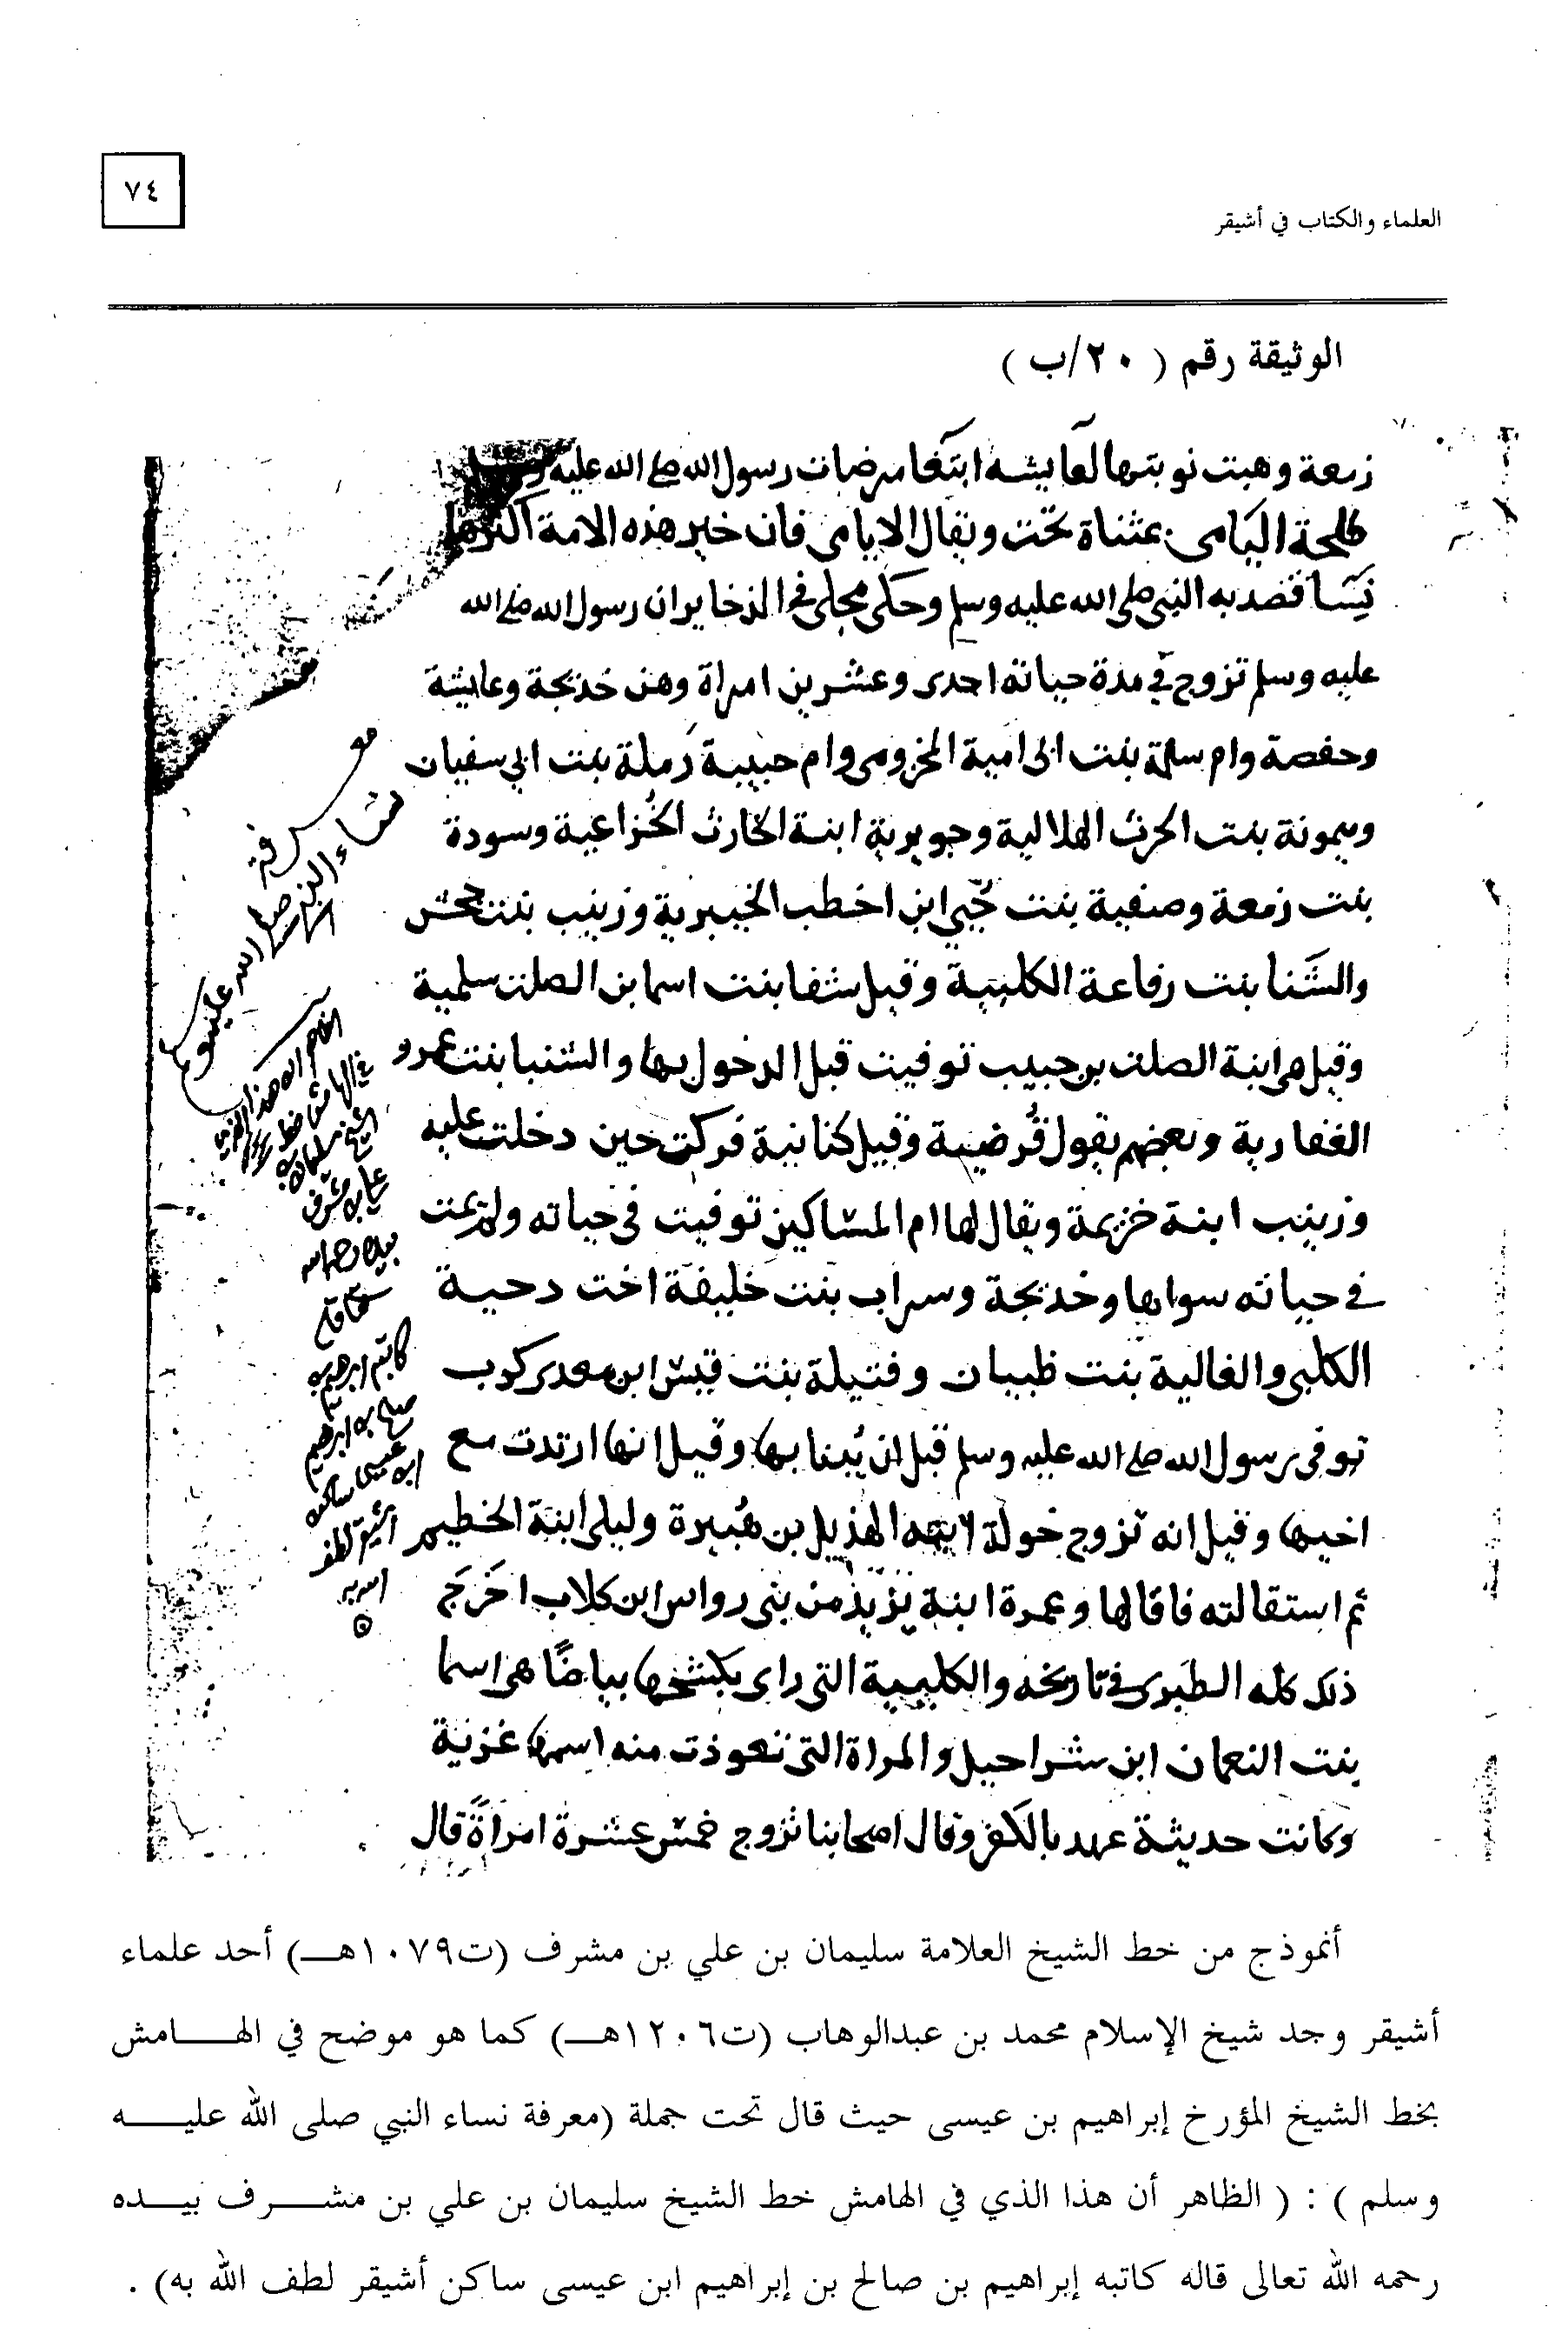 ٧٤
العلماء والكتاب في أشيقر
الوثيقة رقم ( ٢٠/ب )
زمعة وهبت نوبتها لعايشه ابتغا مرضات رسول الله صلى الله عليه
طلحة اليامى بمثناة تحت ويقال الايامى فان خير هذه الامة اكثرها
نسا قصد به النبي صلى الله عليه وسلم وحكى مجلى في الذخاير ان رسول الله صلى الله
عليه وسلم تزوج في مدة حياته احدى وعشرين امراة وهن خديجة وعايشة
وحفصة وام سلمة بنت ابى امية المخزومى وام حبيبة رملة بنت ابي سفيان
وميمونة بنت الحرث الهلالية وجويرية ابنة الحارث الخزاعية وسودة
بنت زمعة وصفية بنت حيي ابن اخطب الخيبرية وزينب بنت جحش
والشنا بنت رفاعة الكلبية وقيل شفا بنت اسما بن الصلت سلمية
وقيل هى ابنة الصلت بن حبيب توفيت قبل الدخول بها والشنبا بنت عمرو
الغفارية وبعضهم يقول قرضية وقيل كنانية فركت حين دخلت عليه
وزينب ابنة خزيمة ويقال لها ام المساكين توفيت في حياته ولم يمت
في حياته سواها وخديجة وسراب بنت خليفة اخت دحية
الكلبى والغالية بنت ظبيان وفتيلة بنت قيس ابن معدى كوب
توفى رسول الله صلى الله عليه وسلم قبل ان يبنا بها وقيل انها ارتدت مع
اخيها وقيل انه تزوج خولة لابنه الهذيل بن هبيرة وليلى ابنة الخطيم
ثم استقالته فاقالها وعمرة ابنة يزيد من بنى رواس ابن كلاب اخرج
ذلك كله الطبرى في تاريخه والكلبية التى راى بكشحها بياضا هى اسما
بنت النعمان ابن شراحيل والمراة التى تعوذت منه اسمها غزنية
وكانت حديثة عهد بالكفر وقال اصحابنا تزوج خمس عشرة امراة قال
معرفة
نساء النبي صلى الله عليه وسلم
الظاهر ان هذا الذي
في الهامش خط
الشيخ سليمان بن
علي بن مشرف
بيده رحمه الله
تعالى قاله
كاتبه ابراهيم بن
صالح بن ابراهيم
ابن عيسى ساكن
اشيقر لطف
الله به
أنموذج من خط الشيخ العلامة سليمان بن علي بن مشرف (ت١٠٧٩هـ) أحد علماء
أشيقر وجد شيخ الإسلام محمد بن عبدالوهاب (ت١٢٠٦هـ) كما هو موضح في الهامش
بخط الشيخ المؤرخ إبراهيم بن عيسى حيث قال تحت جملة (معرفة نساء النبي صلى الله عليه
وسلم ) : ( الظاهر أن هذا الذي في الهامش خط الشيخ سليمان بن علي بن مشرف بيده
رحمه الله تعالى قاله كاتبه إبراهيم بن صالح بن إبراهيم ابن عيسى ساكن أشيقر لطف الله به) .